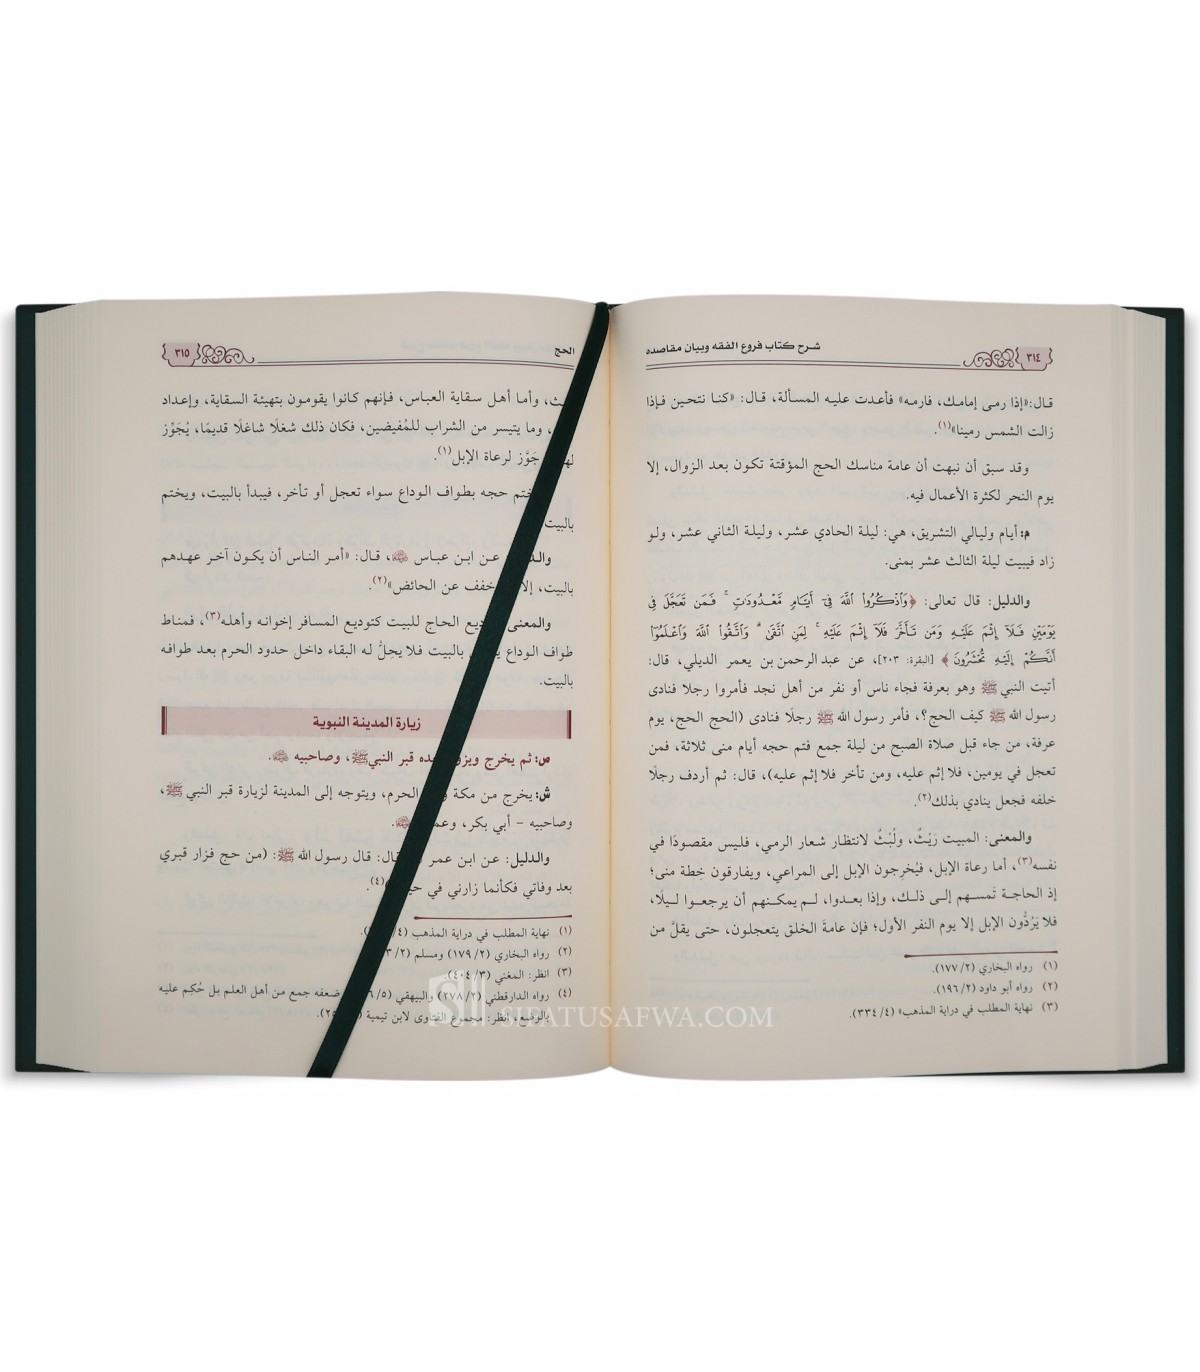 ٣١٤
شرح كتاب فروع الفقه وبيان مقاصده
قال: «إذا رمى إمامك، فارمه» فأعدت عليه المسألة، قال: «كنا نتحين فإذا
زالت الشمس رمينا»(١).
وقد سبق أن نبهت أن عامة مناسك الحج المؤقتة تكون بعد الزوال، إلا
يوم النحر لكثرة الأعمال فيه.
م: أيام وليالي التشريق، هي: ليلة الحادي عشر، وليلة الثاني عشر، ولو
زاد فيبيت ليلة الثالث عشر بمنى.
والدليل: قال تعالى: ﴿وَٱذۡكُرُواْ ٱللَّهَ فِيٓ أَيَّامٖ مَّعۡدُودَٰتٖۚ فَمَن تَعَجَّلَ فِي
يَوۡمَيۡنِ فَلَآ إِثۡمَ عَلَيۡهِ وَمَن تَأَخَّرَ فَلَآ إِثۡمَ عَلَيۡهِۖ لِمَنِ ٱتَّقَىٰۗ وَٱتَّقُواْ ٱللَّهَ وَٱعۡلَمُوٓاْ
أَنَّكُمۡ إِلَيۡهِ تُحۡشَرُونَ﴾ [البقرة: ٢٠٣]، عن عبد الرحمن بن يعمر الديلي، قال:
أتيت النبي ﷺ وهو بعرفة فجاء ناس أو نفر من أهل نجد فأمروا رجلا فنادى
رسول الله ﷺ كيف الحج؟، فأمر رسول الله ﷺ رجلًا فنادى (الحج الحج، يوم
عرفة، من جاء قبل صلاة الصبح من ليلة جمع فتم حجه أيام منى ثلاثة، فمن
تعجل في يومين، فلا إثم عليه، ومن تأخر فلا إثم عليه)، قال: ثم أردف رجلًا
خلفه فجعل ينادي بذلك(٢).
والمعنى: المبيت رَيْثٌ، ولُبْثٌ لانتظار شعار الرمي، فليس مقصودًا في
نفسه(٣)، أما رعاة الإبل، فيُخرِجون الإبل إلى المراعي، ويفارقون خِطة منى؛
إذ الحاجة تَمسهم إلى ذلك، وإذا بعدوا، لم يمكنهم أن يرجعوا ليلًا،
فلا يَرُدُّون الإبل إلا يوم النفر الأول؛ فإن عامةَ الخلق يتعجلون، حتى يقلَّ من
(١) رواه البخاري (٢/ ١٧٧).
(٢) رواه أبو داود (٢/ ١٩٦).
(٣) نهاية المطلب في دراية المذهب» (٤/ ٣٣٤).
الحج
٣١٥
وأما أهل سقاية العباس، فإنهم كانوا يقومون بتهيئة السقاية، وإعداد
وما يتيسر من الشراب للمُفيضين، فكان ذلك شغلًا شاغلًا قديمًا، يُجَوَّز
جَوَّز لرعاة الإبل(١).
حجه بطواف الوداع سواء تعجل أو تأخر، فيبدأ بالبيت، ويختم
بالبيت
عن ابن عباس، قال: «أمر الناس أن يكون آخر عهدهم
بالبيت، خفف عن الحائض»(٢).
والمعنى الحاج للبيت كتوديع المسافر إخوانه وأهله(٣)، فمناط
طواف الوداع بالبيت فلا يحِلُّ له البقاء داخل حدود الحرم بعد طوافه
بالبيت.
زيارة المدينة النبوية
ص: ثم يخرج قبر النبي ﷺ، وصاحبيه.
ش: يخرج من مكة الحرم، ويتوجه إلى المدينة لزيارة قبر النبي ﷺ،
وصاحبيه – أبي بكر،
والدليل: عن ابن عمر قال: قال رسول الله ﷺ: (من حج فزار قبري
بعد وفاتي فكأنما زارني في (٤).
(١) نهاية المطلب في دراية المذهب
(٢) رواه البخاري (٢/ ١٧٩) ومسلم
(٣) انظر: المغني (٣/ ٤٠٤).
(٤) رواه الدارقطني (٢/ ٢٧٨) والبيهقي ضعفه جمع من أهل العلم بل حُكِم عليه
بالوضع، انظر: مجموع الفتاوى لابن تيمية
SIFATUSAFWA.COM